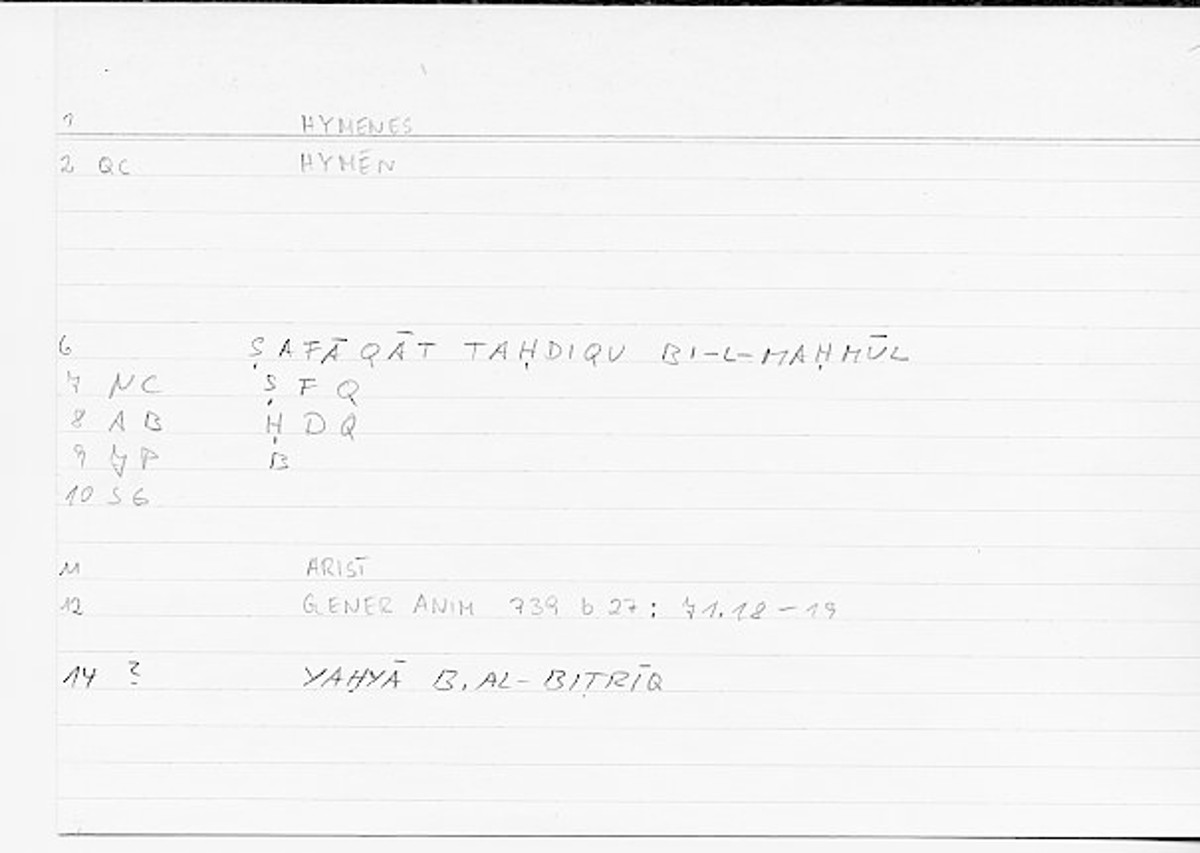 1 HYMENES
2 QC HYMĒN
6 ṢAFĀQĀT TAḤDIQU BI-L-MAḤMŪL
7 NC ṢFQ
8 AB ḤDQ
9 YP B
10 SG
11 ARIST
12 GENER ANIM 739 b 27 : 71.18-19
14 ? YAḤYĀ B. AL-BIṬRĪQ